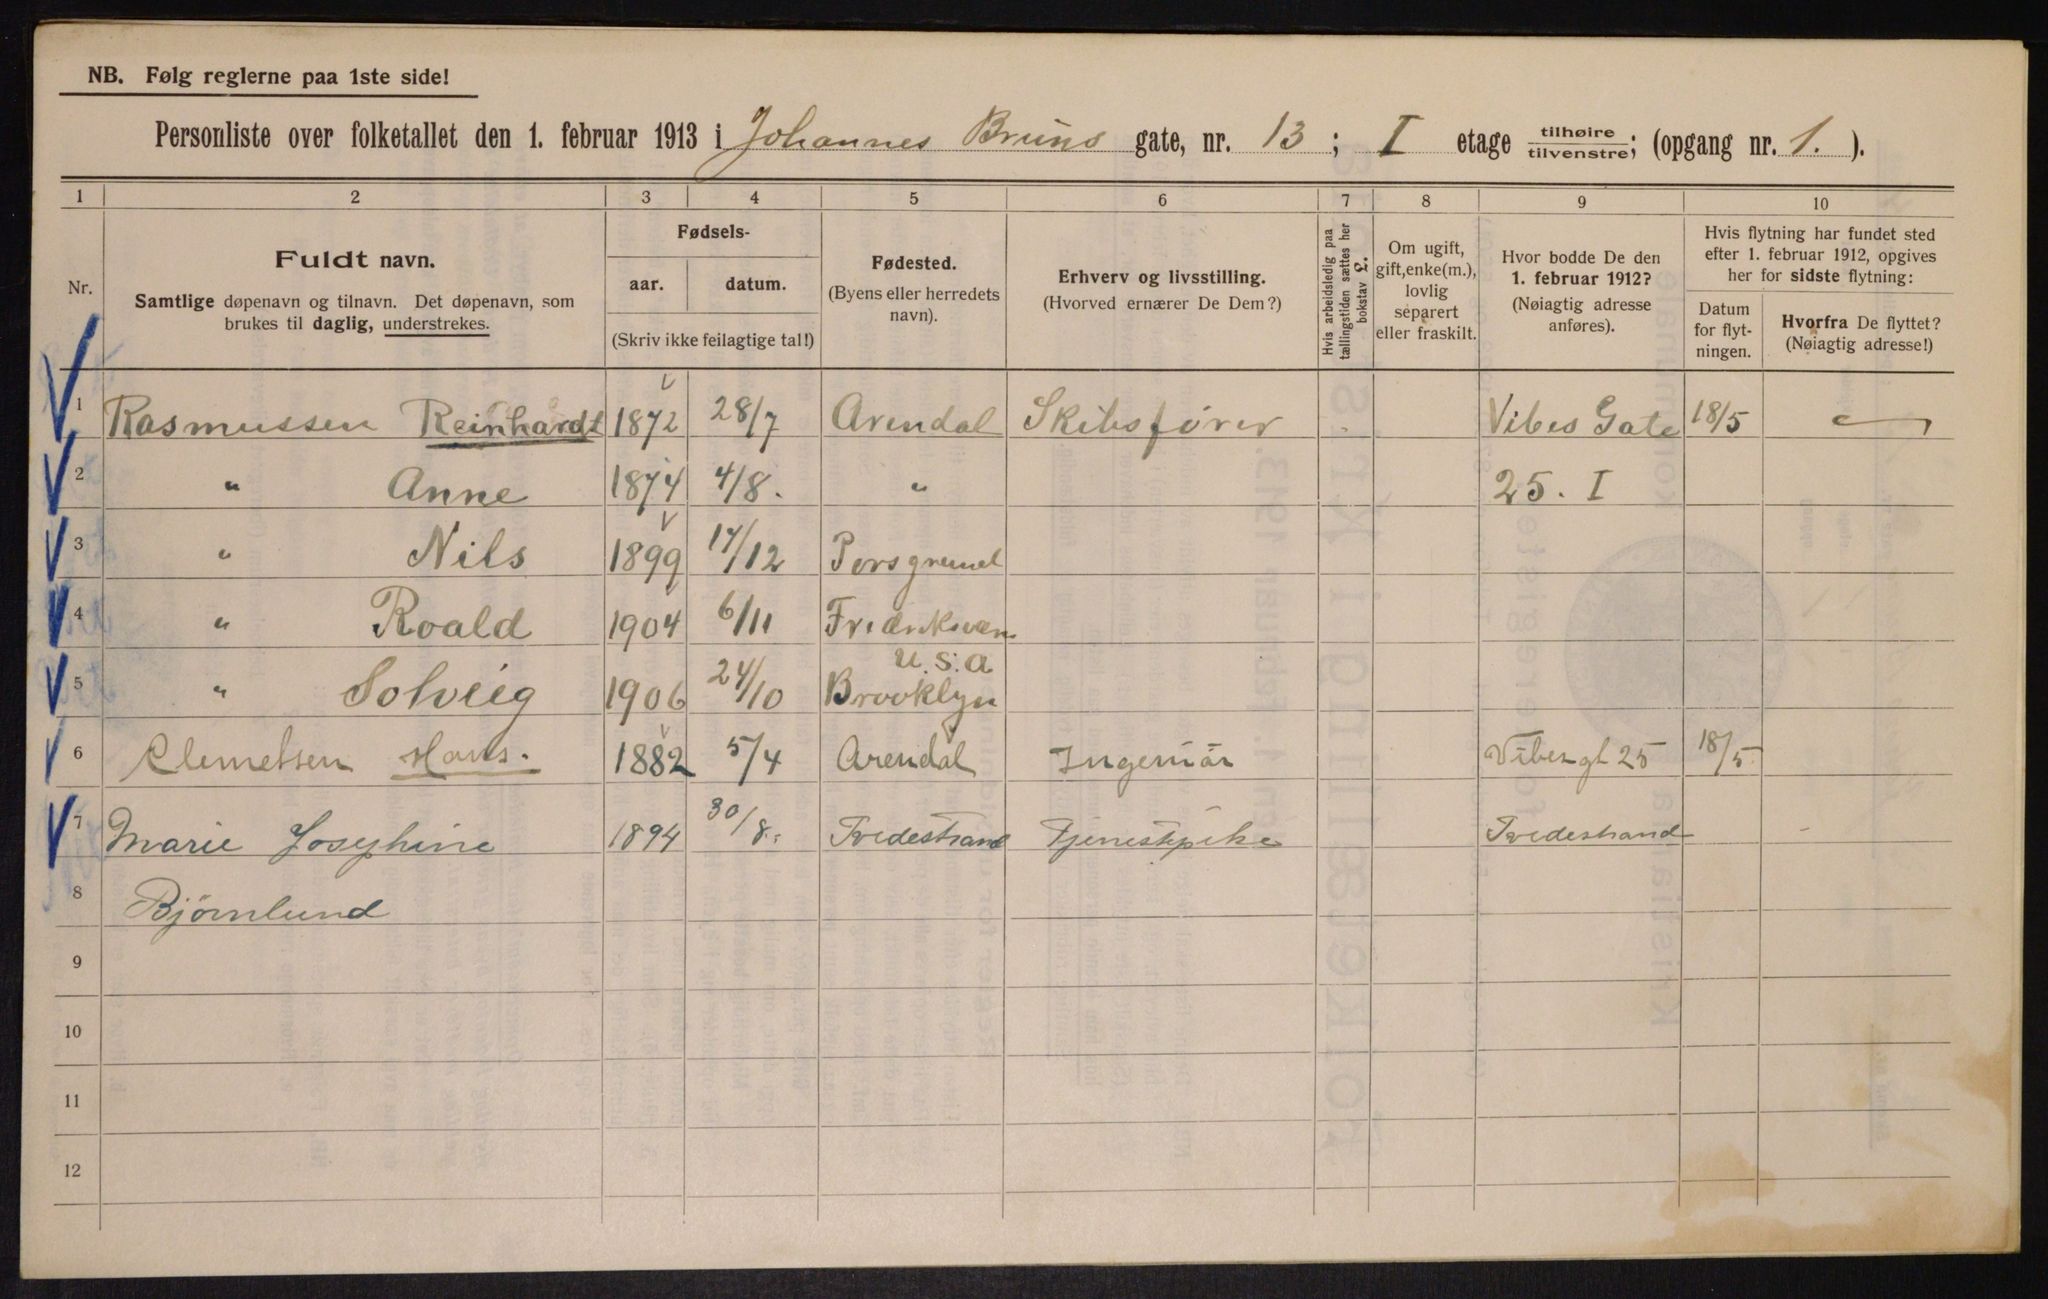 NB. Følg reglerne paa 1ste side!
Personliste over folketallet den 1. februar 1913 i Johannes Bruns gate, nr. 13; I etage tilhøire/tilvenstre; (opgang nr. 1.).
1 2 3 4 5 6 7 8 9 10
Nr.
Fuldt navn.
Samtlige døpenavn og tilnavn. Det døpenavn, som
brukes til daglig, understrekes.
Fødsels-
aar. datum.
(Skriv ikke feilagtige tal!)
Fødested.
(Byens eller herredets
navn).
Erhverv og livsstilling.
(Hvorved ernærer De Dem?)
Hvis arbeidsledig paa
tællingstiden sættes her
bokstav
Om ugift,
gift, enke(m.),
lovlig
separert
eller fraskilt.
Hvor bodde De den
1. februar 1912?
(Nøiagtig adresse
anføres).
Hvis flytning har fundet sted
efter 1. februar 1912, opgives
her for sidste flytning:
Datum
for flyt-
ningen.
Hvorfra De flyttet?
(Nøiagtig adresse!)
1 Rasmussen Reinhardt 1872 28/7 Arendal Skibsfører Vibes Gate 18/5
2 " Anne 1874 4/8. " 25. I
3 " Nils 1899 17/12
4 " Roald 1904 6/11 Fredriksværn
U.S.A
5 " Solveig 1906 24/10 Brooklyn
6 Clemetsen Hans. 1882 5/4 Arendal Ingeniør Vibesgt 25 18/5
7 Marie Josephine 1894 30/8. Tvedestrand Tjenestpike Tvedestrand
8 Bjørnlund
9
10
11
12